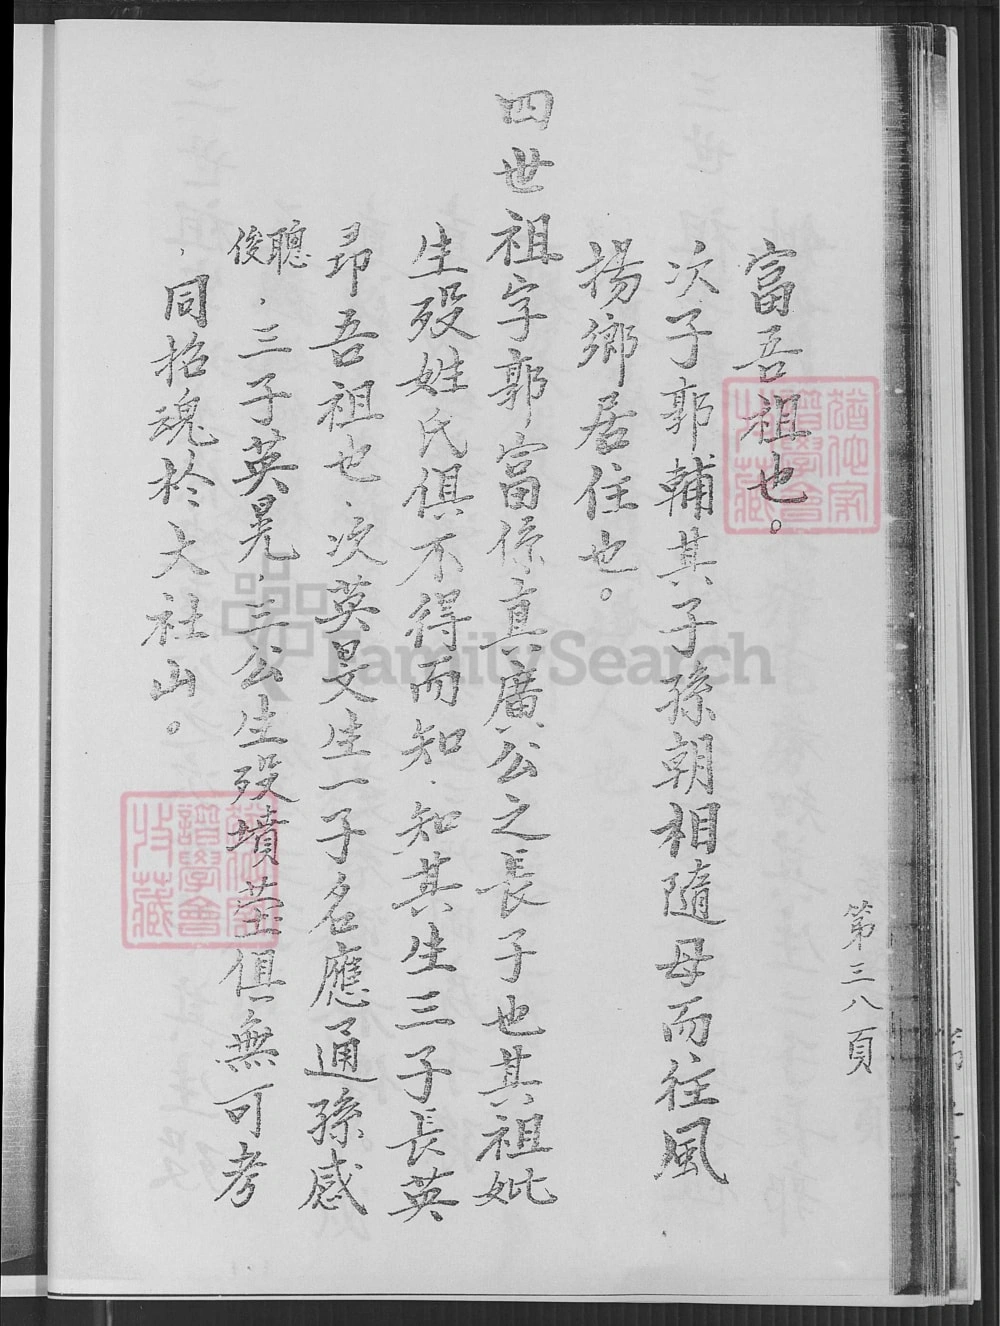 第三八頁
富吾祖也。
次子郭輔其子孫朝相隨母而往風
揚鄉居住也。
四世祖字郭富係真廣公之長子也其祖妣
生歿姓氏俱不得而知、知其生三子長英
昴吾祖也、次英旻生一子名應通孫感
聰俊、三子英晃、三公生歿墳塋俱無可考
、同招魂於大社山。
FamilySearch
譜學會
收藏
譜學會
收藏